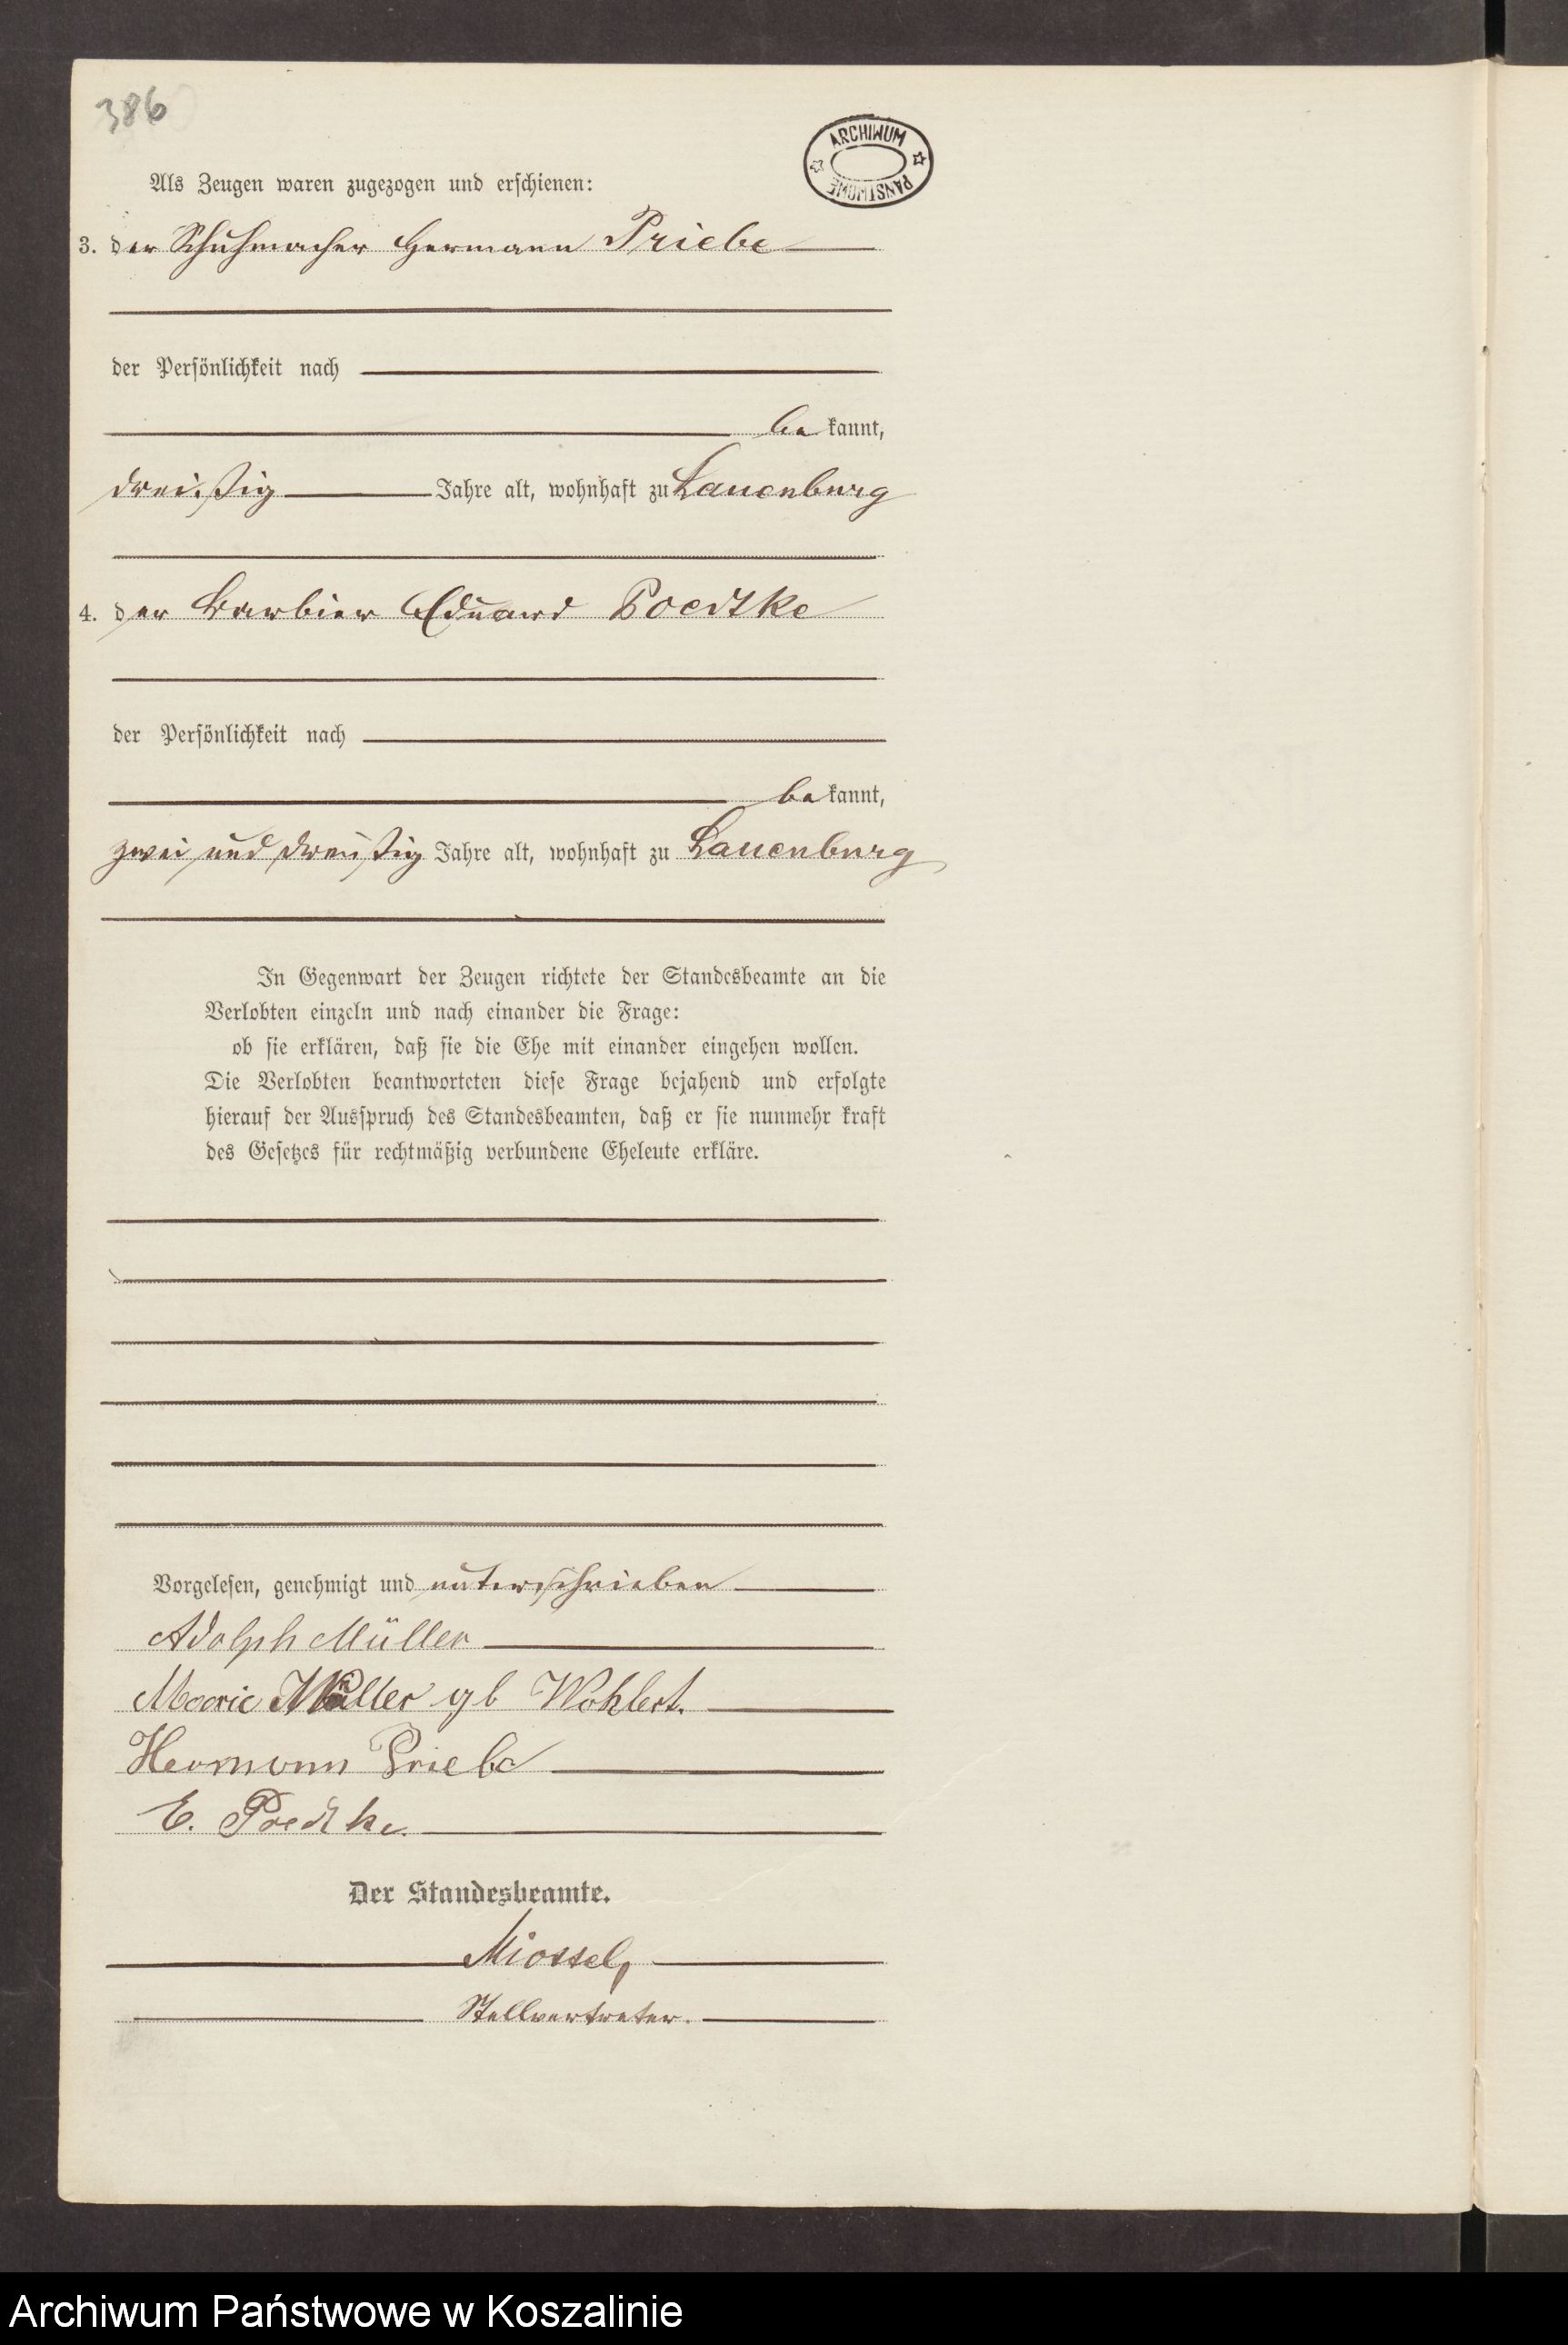 386
ARCHIWUM
PAŃSTWOWE
Als Zeugen waren zugezogen und erschienen:
3. der Schuhmacher Hermann Priebe
der Persönlichkeit nach
bekannt,
dreißig Jahre alt, wohnhaft zu Lauenburg
4. der Barbier Eduard Poedtke
der Persönlichkeit nach
bekannt,
zwei und dreißig Jahre alt, wohnhaft zu Lauenburg
In Gegenwart der Zeugen richtete der Standesbeamte an die
Verlobten einzeln und nach einander die Frage:
ob sie erklären, daß sie die Ehe mit einander eingehen wollen.
Die Verlobten beantworteten diese Frage bejahend und erfolgte
hierauf der Ausspruch des Standesbeamten, daß er sie nunmehr kraft
des Gesetzes für rechtmäßig verbundene Eheleute erkläre.
Vorgelesen, genehmigt und unterschrieben
Adolph Müller
Marie Müller gb Wohlert.
Hermann Priebe
E. Poedtke.
Der Standesbeamte.
Miossel,
Stellvertreter.
Archiwum Państwowe w Koszalinie